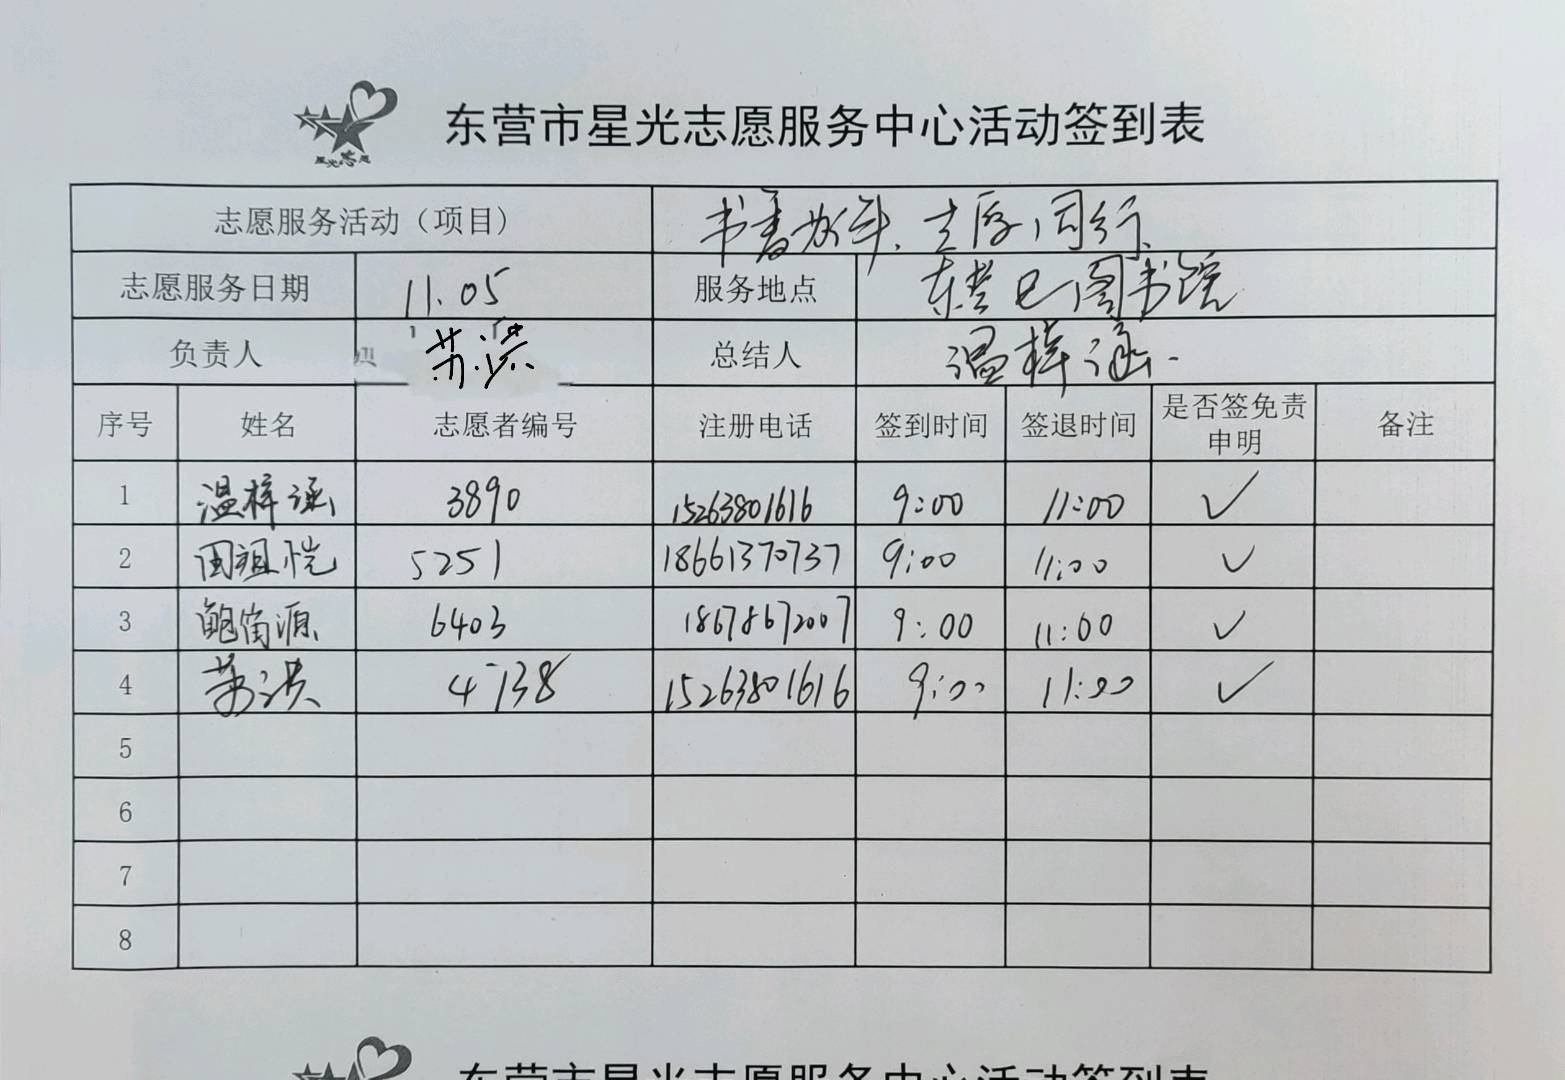 星光志愿
东营市星光志愿服务中心活动签到表
志愿服务活动（项目） 书香少年、志愿同行
志愿服务日期 11.05 服务地点 图书院
负责人 苏洪 总结人 温梓涵
序号 姓名 志愿者编号 注册电话 签到时间 签退时间 是否签免责申明 备注
1 温梓涵 3890 15263801616 9:00 11:00 ✓
2 田祖恺 5251 18661370737 9:00 11:00 ✓
3 鲍 源 6403 18678672007 9:00 11:00 ✓
4 苏洪 4738 15263801616 9:00 11:00 ✓
5
6
7
8
东营市星光志愿服务中心活动签到表